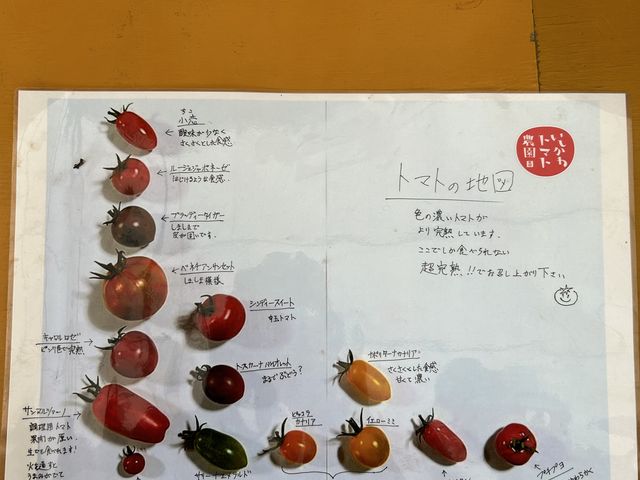 小恋
酸味が少なく
さくさくとした食感
いしかわ
トマト
農園
トマトの地図
はじけるような食感.
色の濃いトマトが
より完熟しています.
ここでしか食べられない
超完熟!!でお召し上がり下さい
ブラッディータイガー
しましまで
皮が固いです.
ベネチアンサンセット
しましま模様
シンディースイート
中玉トマト
キャロルロゼ
ピンク色で完熟
トスカーナバイオレット
まるでぶどう?
ナポリターナカナリア
さくさくとした食感
甘くて濃い
サンマルツァーノ
調理用トマト
果肉が厚い.
生でも食べれます!
火を通すと
うまみがでて
ピッコラ
カナリア
イエローミミ
サリーナエメラルド
プチプヨ